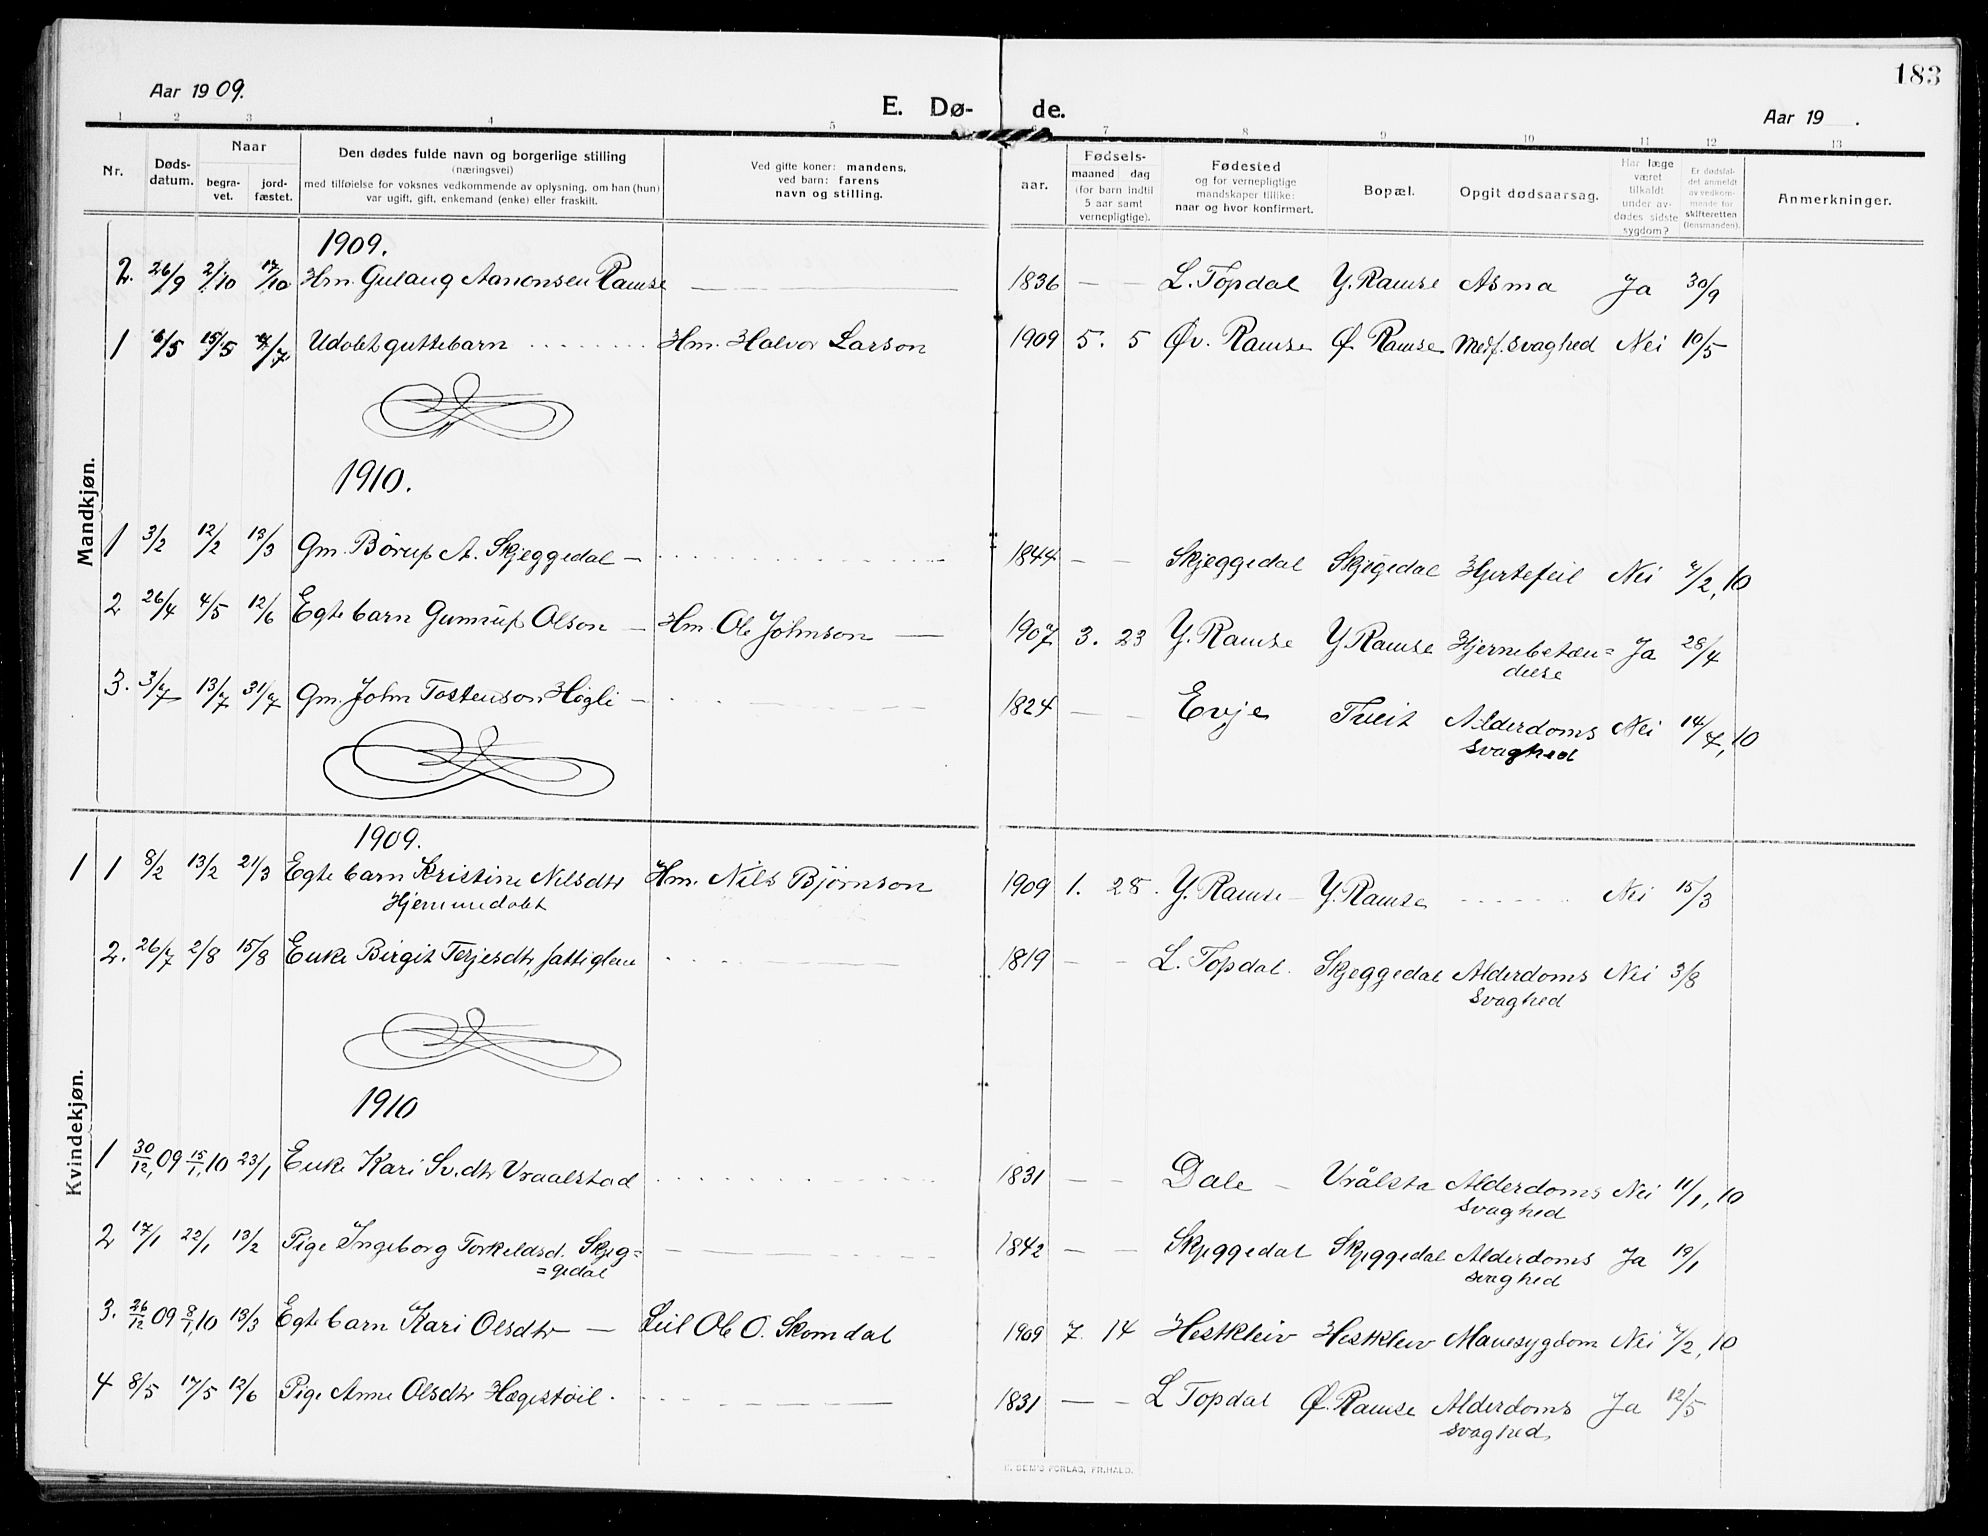 183
Aar 1909.
E. Dø- de.
Aar 19 .
1 2 3 4 5 6 7 8 9 10 11 12 13
Nr.
Døds-
datum.
Naar
begra-
vet.
jord-
fæstet.
Den dødes fulde navn og borgerlige stilling
(næringsvei)
med tilføielse for voksnes vedkommende av oplysning, om han (hun)
var ugift, gift, enkemand (enke) eller fraskilt.
Ved gifte koner: mandens,
ved barn: farens
navn og stilling.
aar.
Fødsels-
maaned dag
(for barn indtil
5 aar samt
vernepligtige).
Fødested
og for vernepligtige
mandskaper tillike:
naar og hvor konfirmert.
Bopæl.
Opgit dødsaarsag.
Har læge
været
tilkaldt
under av-
dødes sidste
sygdom?
Er dødsfal-
det anmeldt
av vedkom-
mende for
skifteretten
(lensmanden).
Anmerkninger.
Mandkjøn.
1909.
2. 26/9 2/10 17/10 Hm. Gulaug Aanonsen Ramse — 1836 — — L. Topdal Y. Ramse Asma Ja 30/9
1 6/5 15/5 4/7 Udøbt guttebarn Hm. Halvor Larson 1909 5. 5 Øv. Ramse Ø. Ramse Medf. svaghed Nei 10/5
1910.
1 3/2 12/2 13/3 Gm. Børup A. Skjeggedal — 1844 — — Skjeggedal Skjegedal Hjertefeil Nei 7/2, 10
2 26/4 4/5 12/6 Egtebarn Gunnup Olson — Hm. Ole Johnson — 1907 3. 23 Y. Ramse Y. Ramse Hjernebetæn= Ja 28/4
delse
3. 3/7 13/7 31/7 Gm. John Tostenson Høgli — 1824 — — Evje Tveit Alderdoms Nei 14/7, 10
svaghed
Kvindekjøn.
1909.
1 1 8/2 13/2 21/3 Egtebarn Kristine Nilsdtr Hm. Nils Bjørnson 1909 1. 28. Y. Ramse — Y. Ramse Nei 15/3
Hjemmedøbt
2. 26/7 2/8 15/8 Enke Birgit Terjesdtr, fattiglem 1819 — — L. Topdal. Skjeggedal Alderdoms Nei 3/8
svaghed
1910
1 30/12, 09 15/1, 10 23/1 Enke Kari Sv.dtr Vraalstad 1831 — — Dale — Vrålsta Alderdoms Nei 11/1, 10
svaghed
2 17/1 22/1 13/2 Pige Ingeborg Torkeldsd. Skjeg= 1842 — — Skjeggedal Skjeggedal Alderdoms Ja 19/1
=gedal svaghed
3. 26/12 09 8/1, 10 13/3 Egtebarn Kari Olsdtr — Leil Ole O. Skomdal 1909 7. 14 Hestkleiv Hestkleiv Mavesygdom Nei 7/2, 10
4 8/5 17/5 12/6 Pige Anne Olsdtr Hægestøil. 1831 — — L Topdal Ø. Ramse Alderdoms Ja 12/5
svaghed
SEM'S FORLAG, FR.HALD.